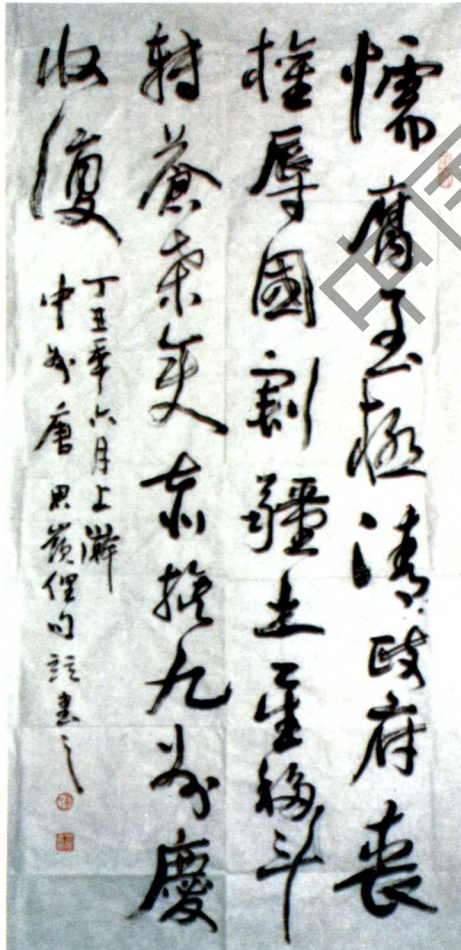 懦腐至極清政府喪
權辱國割疆土星移斗
轉蒼桑変九州慶
收復
丁丑年六月上澣
中州唐思嶺俚句並書之
中国